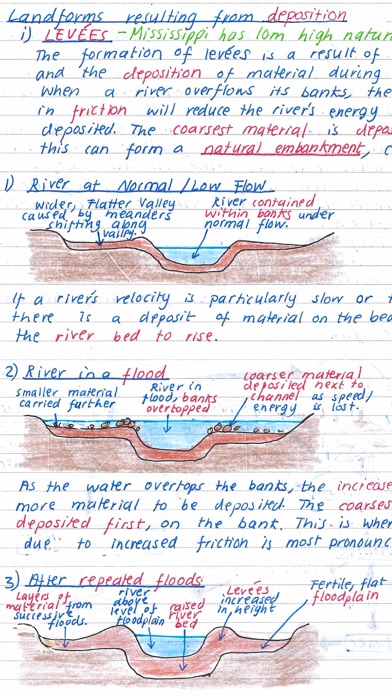 Landforms resulting from deposition
i) LEVÉES - Mississippi has 10m high natur
The formation of levées is a result of
and the deposition of material during
When a river overflows its banks, the
in friction will reduce the river's energy
deposited. The coarsest material is depo
this can form a natural embankment, c
1) River at Normal/Low Flow
wider, flatter valley
caused by meanders
shifting along
valley.
River contained
within banks under
normal flow.
If a river's velocity is particularly slow or
there is a deposit of material on the bed
the river bed to rise.
2) River in a flood
smaller material
carried further
River in
flood, banks
overtopped
coarser material
deposited next to
channel as speed/
energy is lost.
As the water overtops the banks, the increase
more material to be deposited. The coarses
deposited first, on the bank. This is wher
due to increased friction is most pronounc
3) After repeated floods
Layers of
material from
successive
floods.
river
above
level of
floodplain
raised
river
bed
Levées
increased
in height
Fertile, flat
floodplain